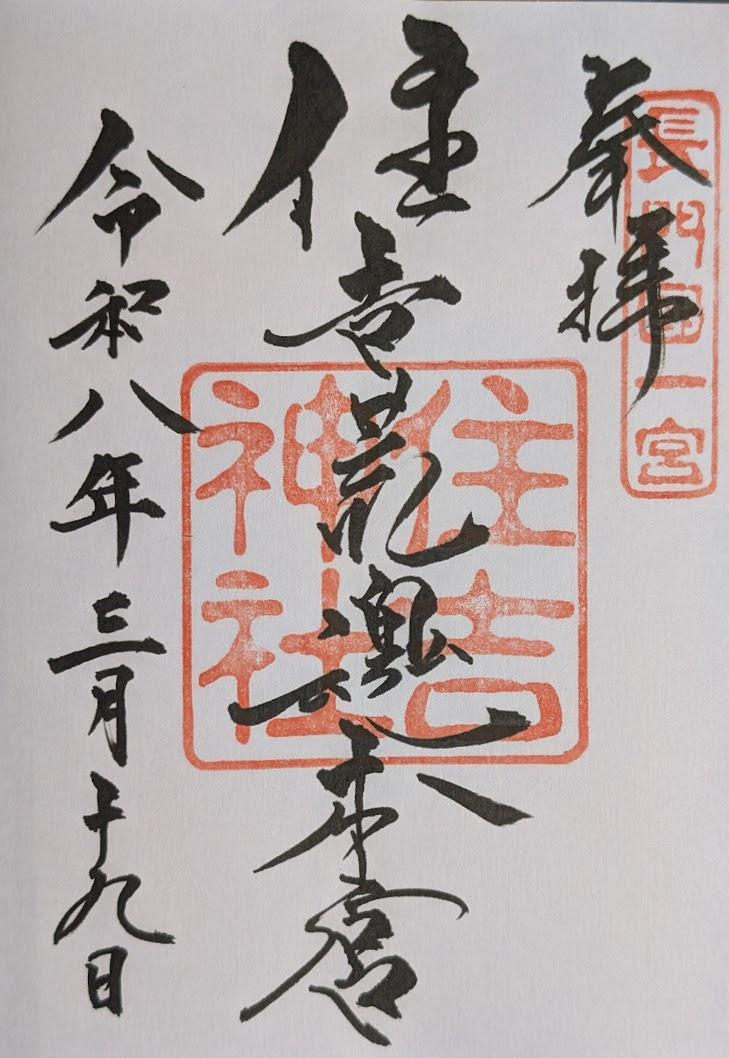 奉拝
長門国一宮
住吉荒魂本宮
住吉神社
令和八年三月十九日